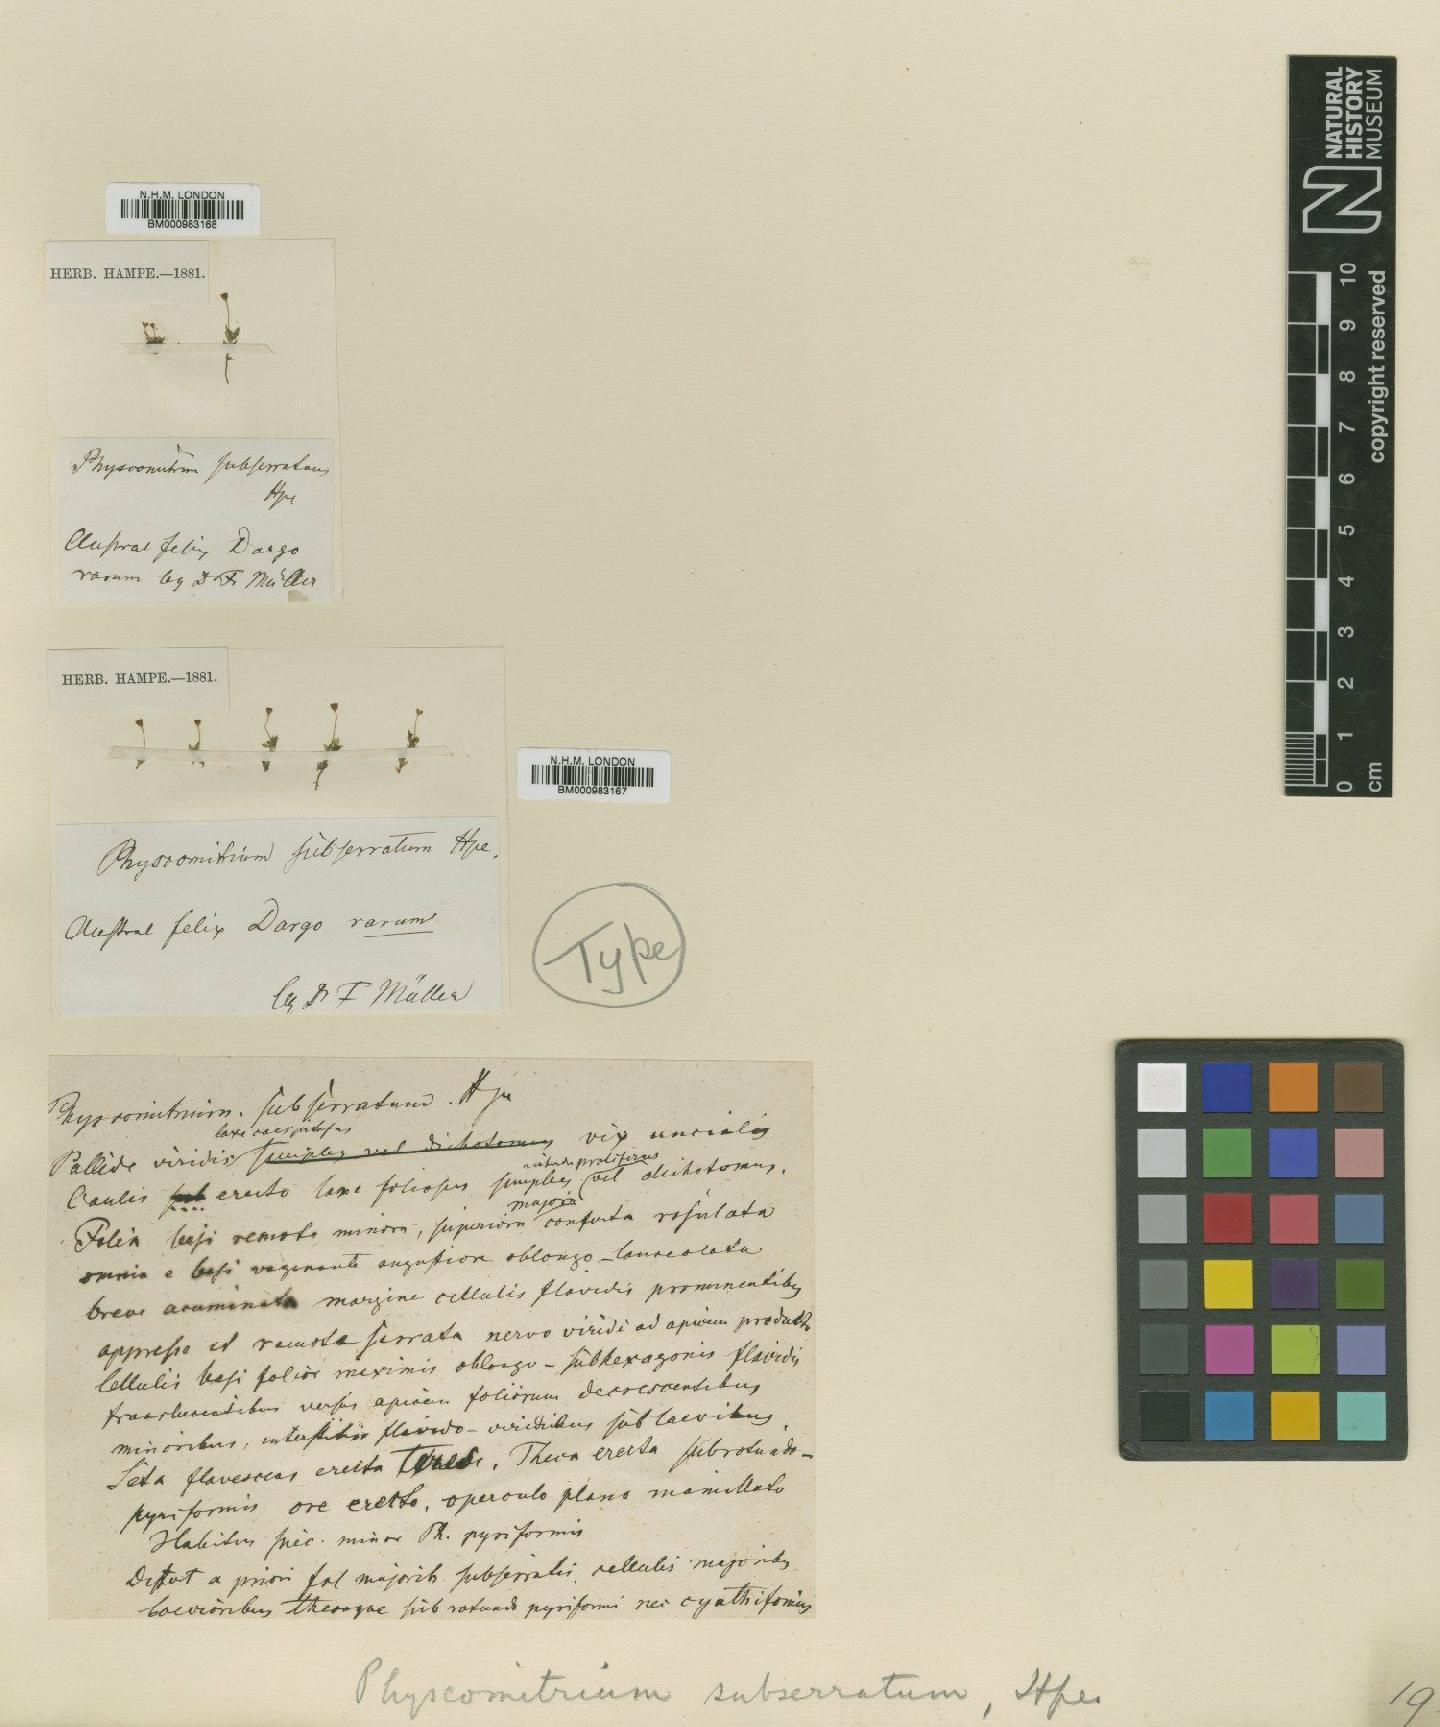 N.H.M. LONDON
BM000983168
HERB. HAMPE.—1881.
Physcomitrium subserratum
Hpe
Austral felix Dargo
rarum leg Dr F. Müller
HERB. HAMPE.—1881.
N.H.M. LONDON
BM000983167
Physcomitrium subserratum Hpe.
Austral felix Dargo rarum
leg Dr F Müller
Type
Physcomitrium. subserratum. Hpe
laxe caespitosus
Pallide viridis simplex vel dichotomus vix uncialis
proliferus
Caulis sub erecto laxe foliosus simplex vel dichotomus.
majora
Folia basi remota minora, superiora conferta rosulata
omnia e basi vaginante angustiora oblongo-lanceolata
breve acuminata margine cellulis flavidis prominentibus
appresse et remota serrata nervo viridi ad apicem producto
Cellulis basi folior maximis oblongo-subhexagonis flavidis
translucentibus versus apicem foliorum decrescentibus
minoribus, interstitiis flavido-viridibus sublaevibus,
Seta flavescens erecta. Theca erecta subrotundo-
pyriformis ore erecto, operculo plano mamillato
Habitus spec. minor Ph. pyriformis
Distat a priori fol majorib subserratis, cellulis majoribus
laevioribus thecaque subrotundo pyriformi nec cyathiformis
Physcomitrium subserratum, Hpe.
19
NATURAL
HISTORY
MUSEUM
copyright reserved
0 1 2 3 4 5 6 7 8 9 10
cm